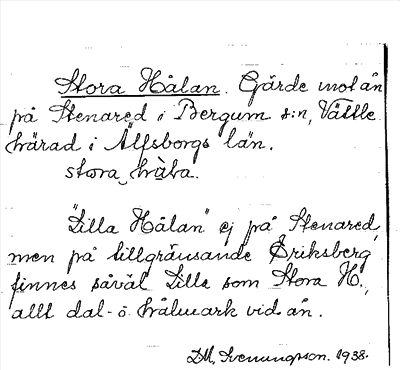 Stora Hålan. Gärde mot ån
på Stenared i Bergum s:n, Vättle
härad i Älfsborgs län.
stora håla.
"Lilla Hålan" ej på Stenared,
men på tillgränsande Eriksberg
finnes såväl Lilla som Stora H.,
allt dal- o. hålmark vid ån.
D.M. Svenungsson. 1938.